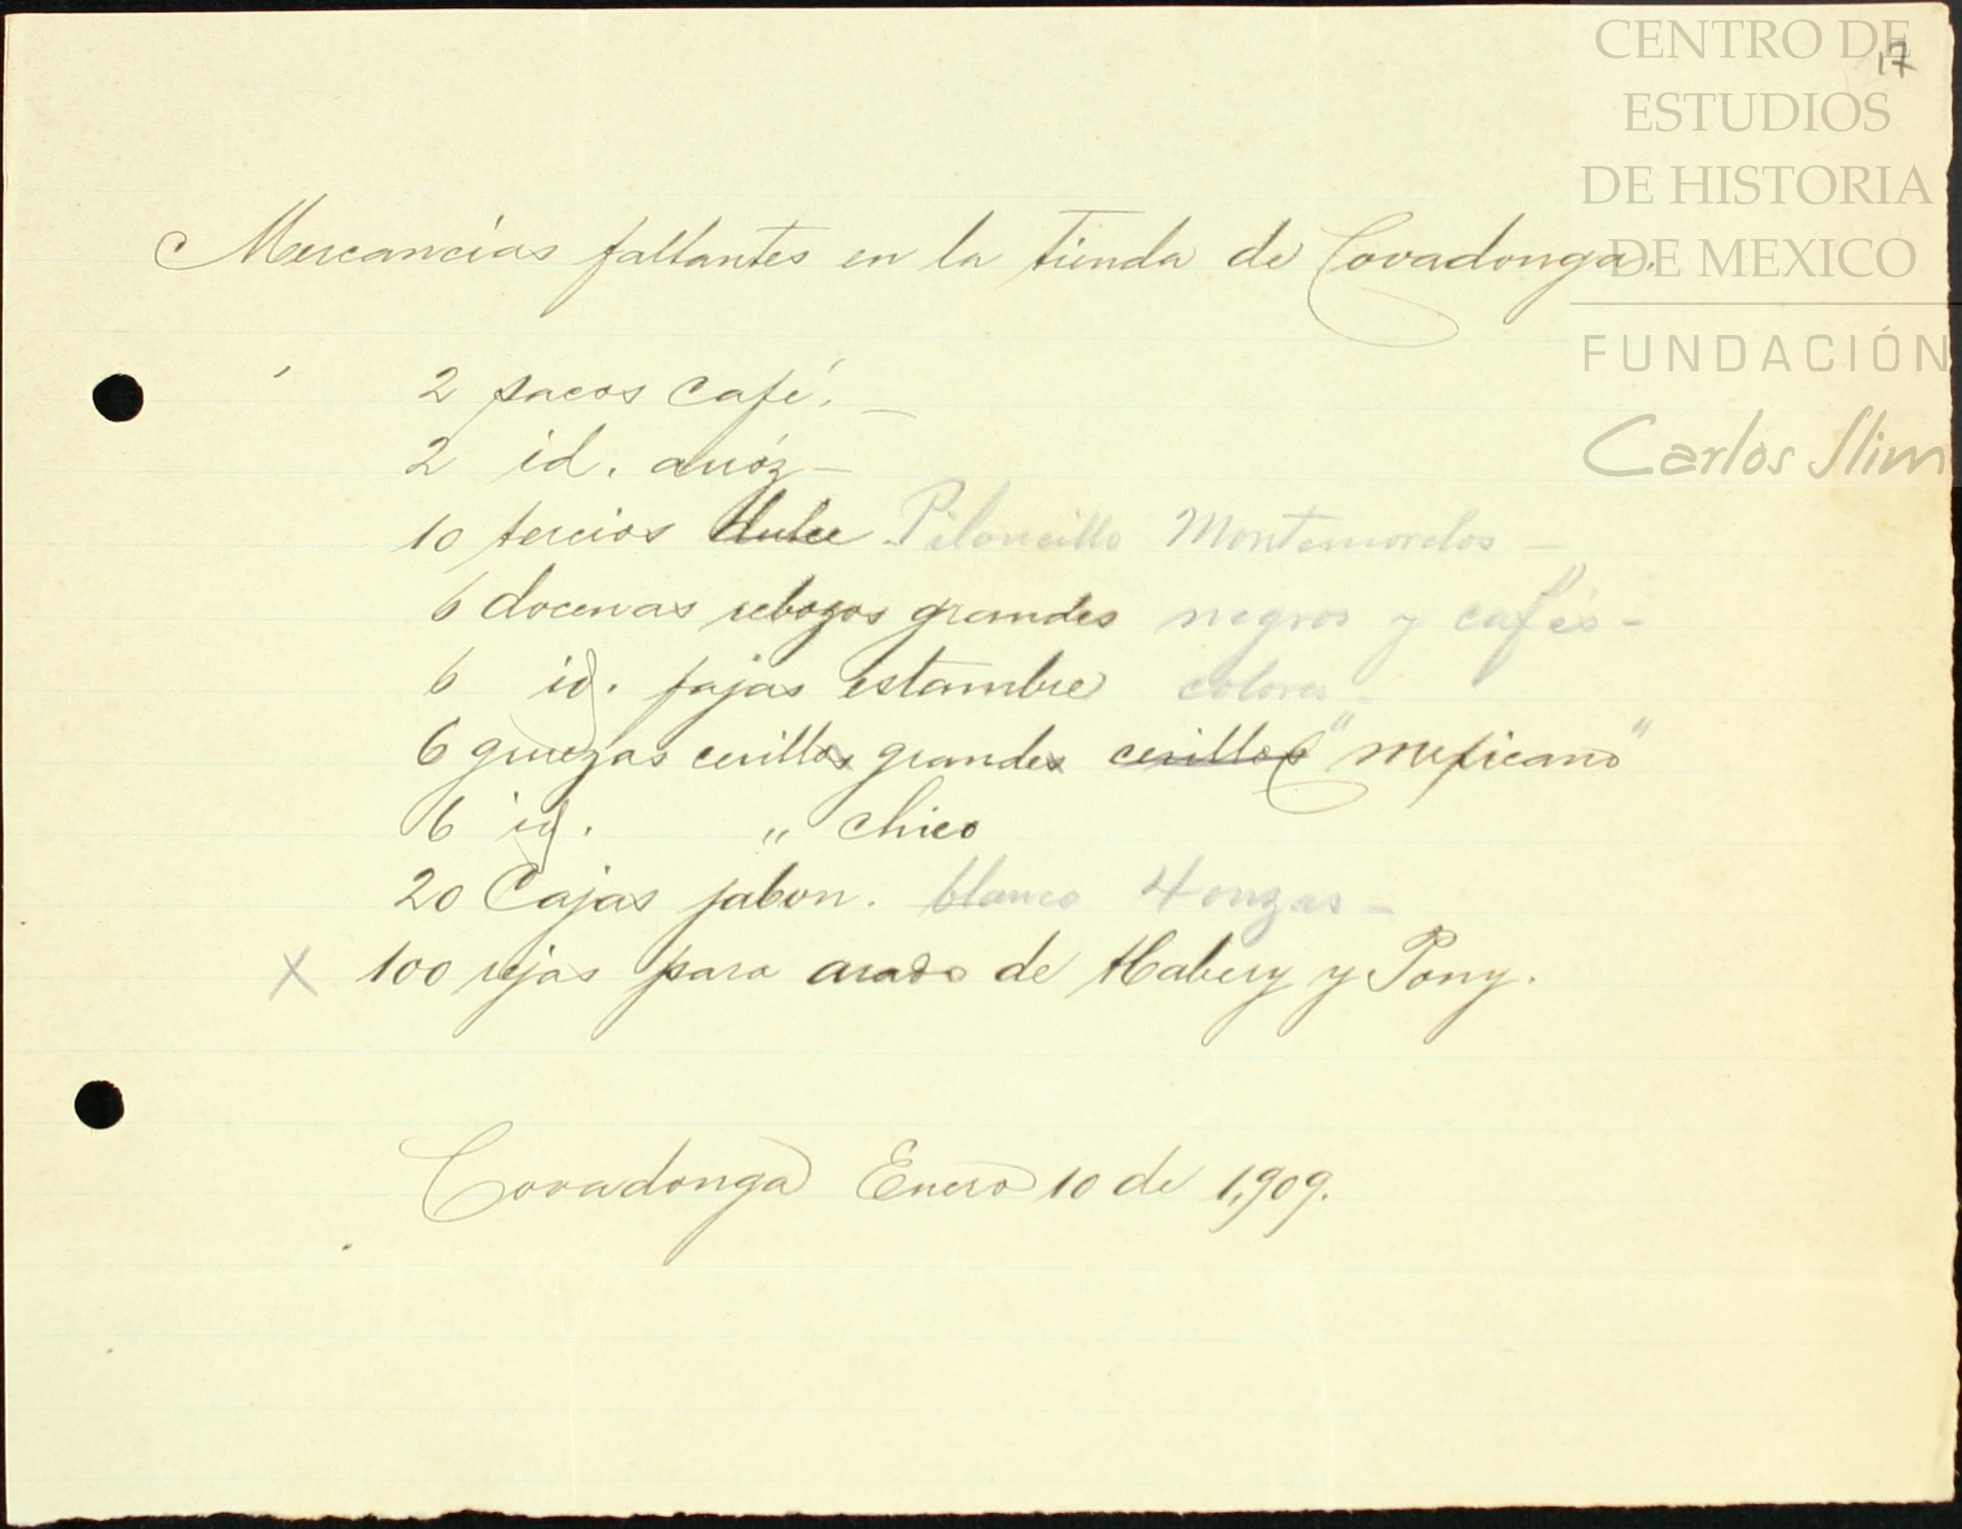 CENTRO DE
17
ESTUDIOS
DE HISTORIA
DE MEXICO
FUNDACIÓN
Carlos Slim
Mercancias faltantes en la tienda de Covadonga.
2 sacos Café. –
2 id. arróz –
10 tercios dulce Piloncillo Montemorelos –
6 docenas rebozos grandes negros y cafés –
6 id. fajas estambre colores –
6 gruezas cerillos grandes cerillos "mexicano"
6 id. " chico
20 Cajas jabon. blanco 4 onzas –
X 100 rejas para arado de Habery y Pony.
Covadonga Enero 10 de 1,909.